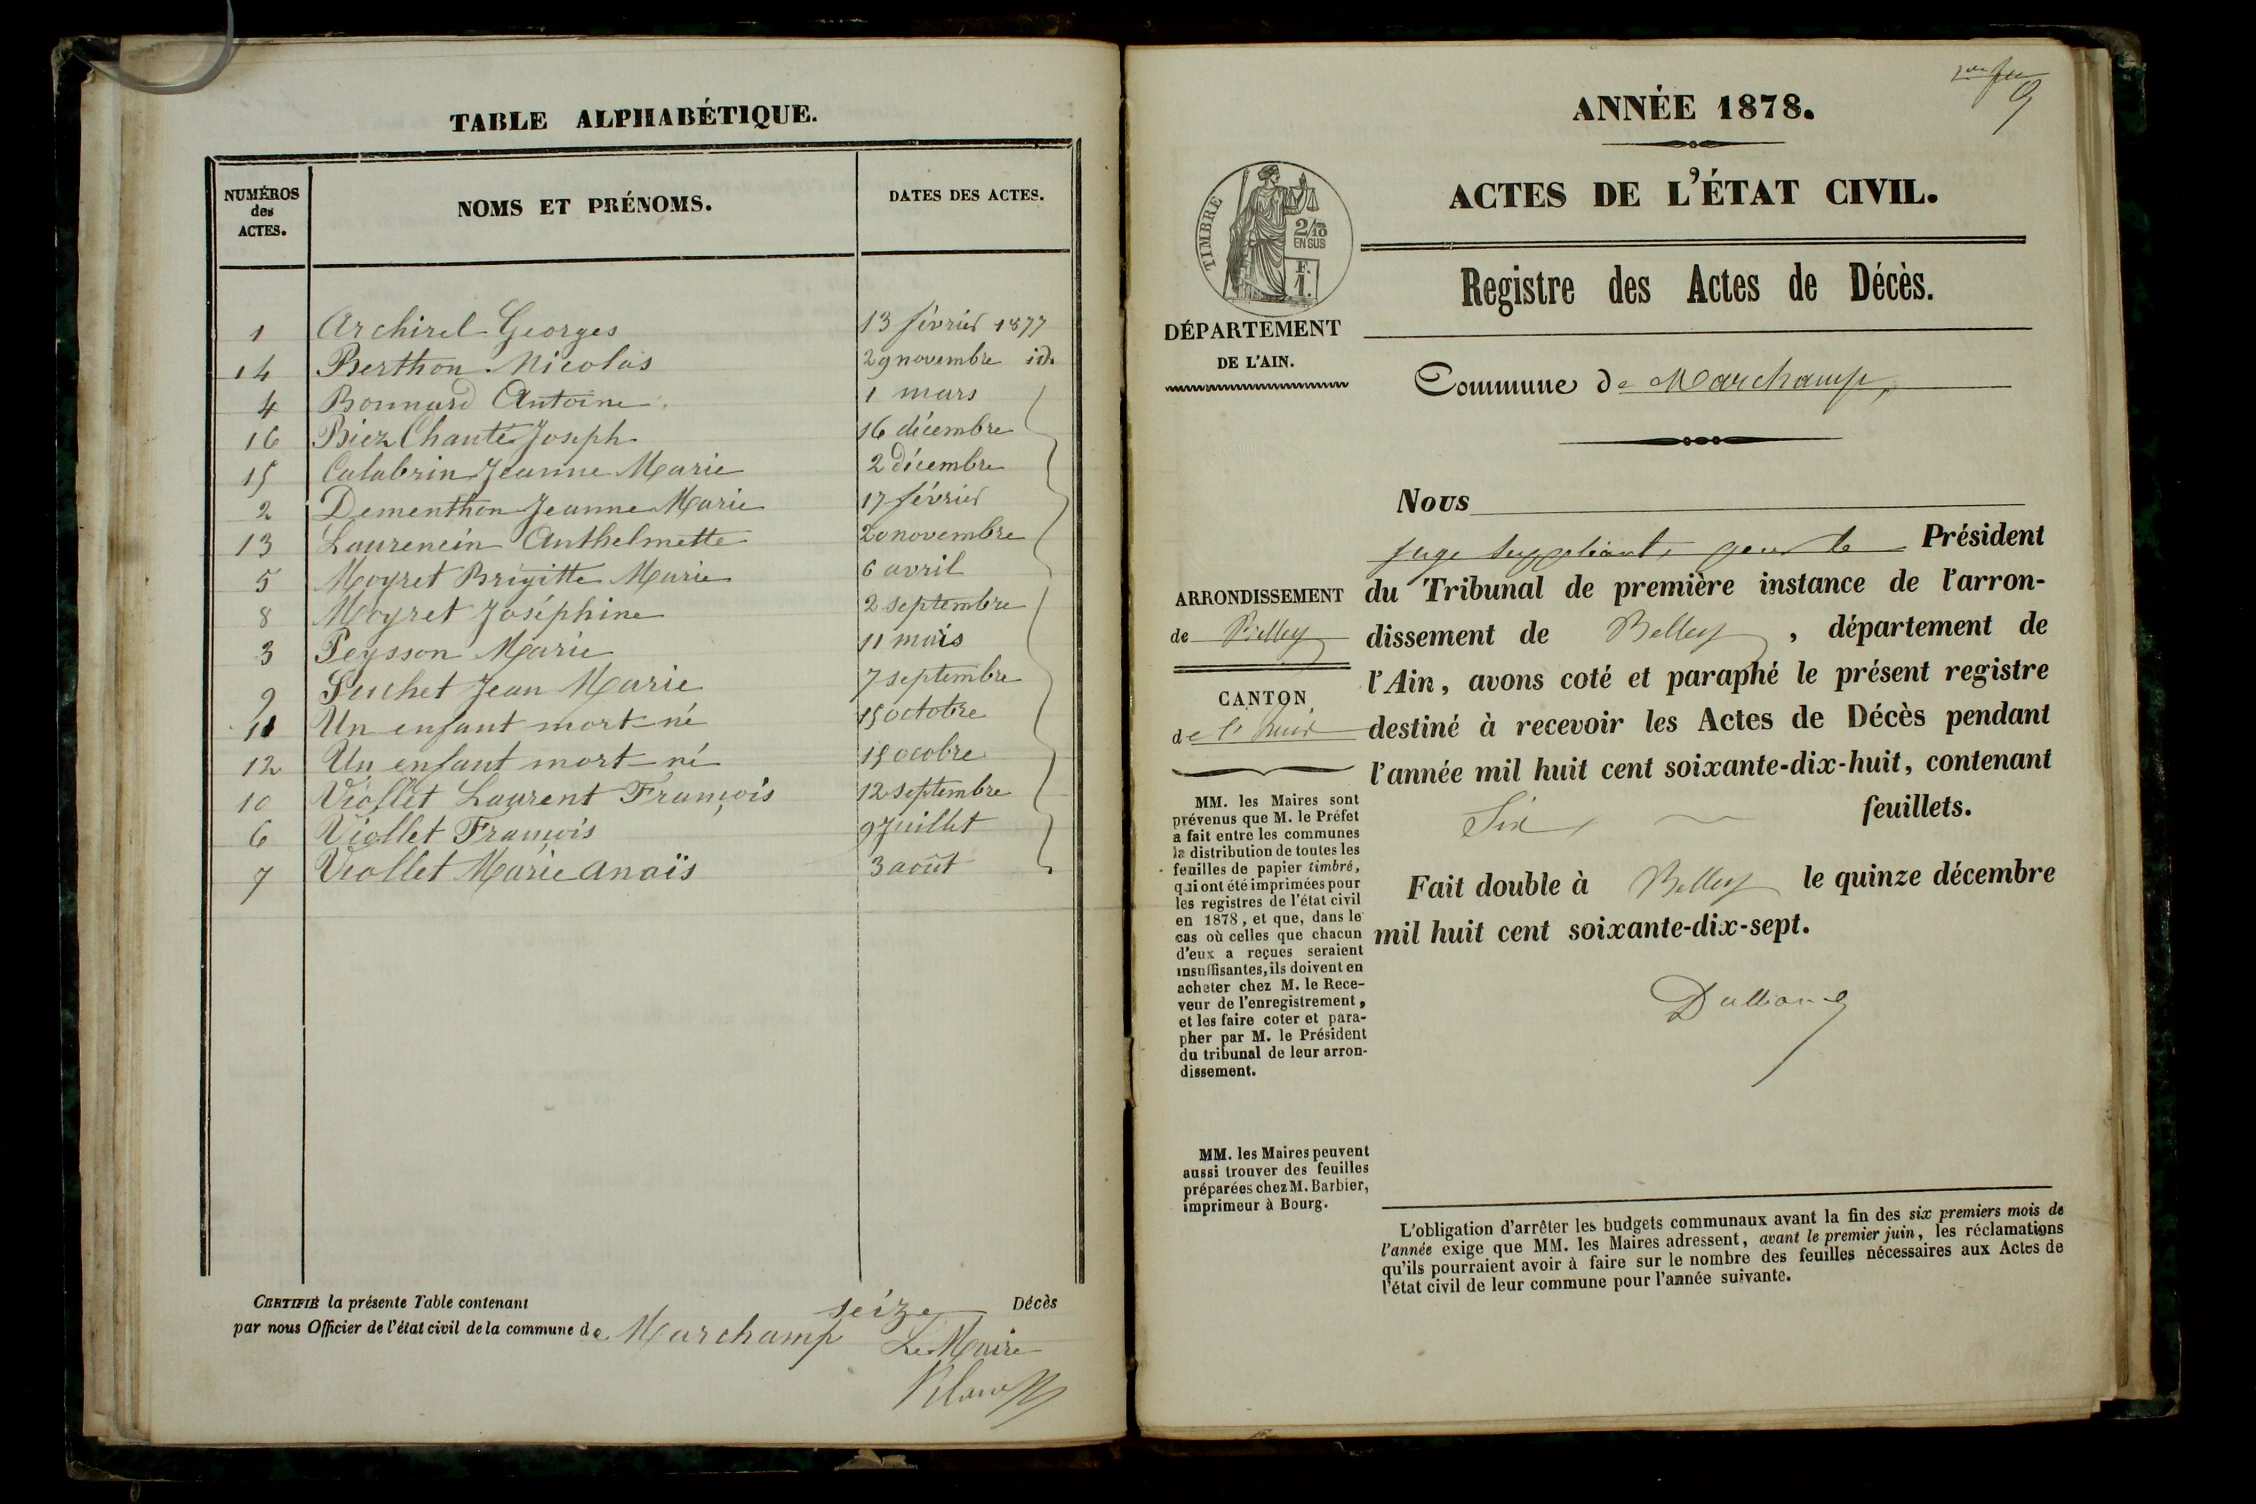 TABLE ALPHABÉTIQUE.
NUMÉROS des ACTES. NOMS ET PRÉNOMS. DATES DES ACTES.
1 Archirel Georges 13 février 1877
14 Berthon Nicolas 29 novembre id.
4 Bonnard Antoine 1 mars
16 Biez Chanté Joseph 16 décembre
15 Calabrin Jeanne Marie 2 décembre
2 Dementhon Jeanne Marie 17 février
13 Laurencin Anthelmette 20 novembre
5 Moyret Brigitte Marie 6 avril
8 Moyret Joséphine 2 septembre
3 Peysson Marie 11 mars
9 Suchet Jean Marie 7 septembre
11 Un enfant mort-né 15 octobre
12 Un enfant mort-né 15 ocobre
10 Viollet Laurent François 12 septembre
6 Viollet François 9 Juillet
7 Viollet Marie anaïs 3 août
CERTIFIÉ la présente Table contenant seize Décès
par nous Officier de l'état civil de la commune de Marchamp
Le Maire
ANNÉE 1878.
ACTES DE L'ÉTAT CIVIL.
TIMBRE
2/10
EN SUS
F.
1.
Registre des Actes de Décès.
DÉPARTEMENT
DE L'AIN.
Commune de Marchamp,
Nous
juge suppléant, pour le Président
du Tribunal de première instance de l'arron-
dissement de Belley, département de
l'Ain, avons coté et paraphé le présent registre
destiné à recevoir les Actes de Décès pendant
l'année mil huit cent soixante-dix-huit, contenant
Six feuillets.
Fait double à Belley le quinze décembre
mil huit cent soixante-dix-sept.
ARRONDISSEMENT
de Belley
CANTON
de
MM. les Maires sont
prévenus que M. le Préfet
a fait entre les communes
la distribution de toutes les
feuilles de papier timbré,
qui ont été imprimées pour
les registres de l'état civil
en 1878, et que, dans le
cas où celles que chacun
d'eux a reçues seraient
insuffisantes, ils doivent en
acheter chez M. le Rece-
veur de l'enregistrement,
et les faire coter et para-
pher par M. le Président
du tribunal de leur arron-
dissement.
MM. les Maires peuvent
aussi trouver des feuilles
préparées chez M. Barbier,
imprimeur à Bourg.
L'obligation d'arrêter les budgets communaux avant la fin des six premiers mois de
l'année exige que MM. les Maires adressent, avant le premier juin, les réclamations
qu'ils pourraient avoir à faire sur le nombre des feuilles nécessaires aux Actes de
l'état civil de leur commune pour l'année suivante.